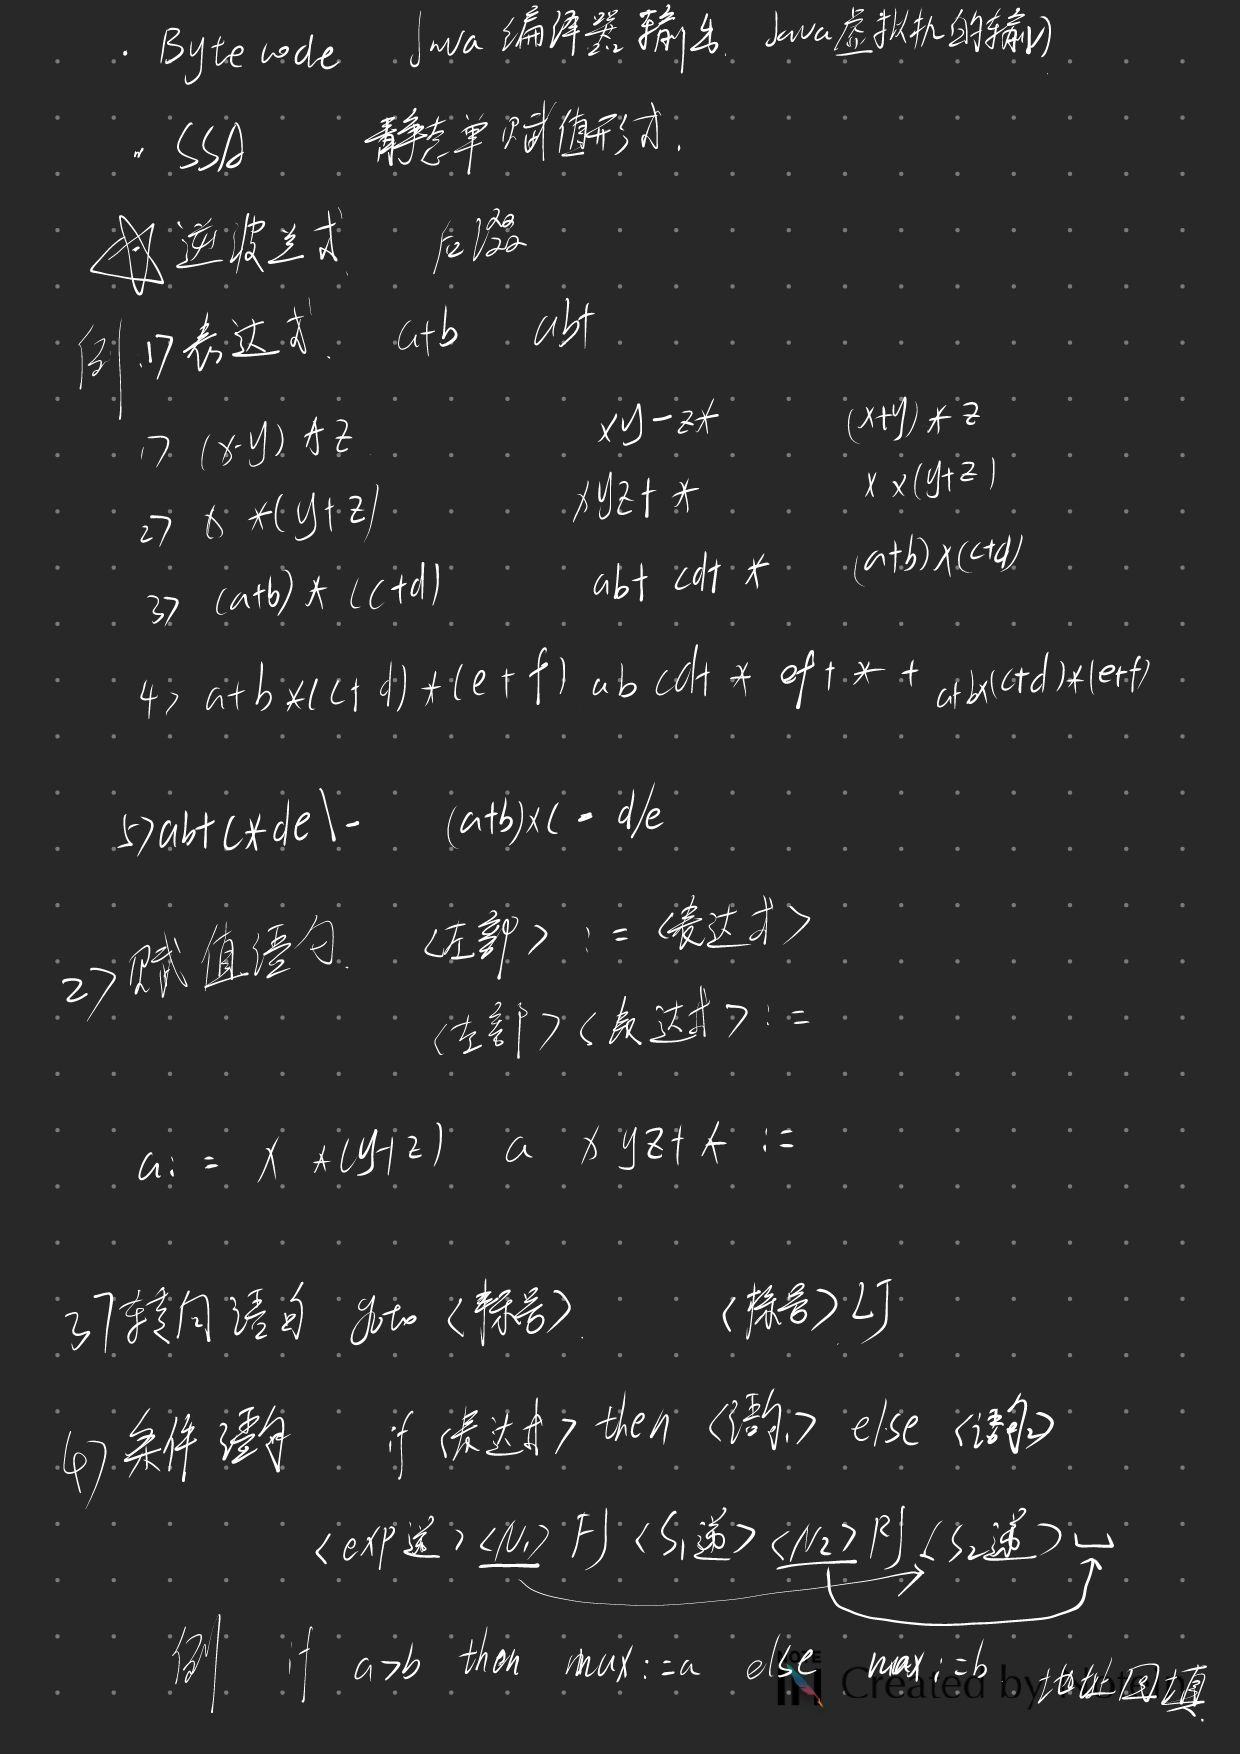 · Bytecode Java编译器输出 Java虚拟机的输入
· SSA 静态单赋值形式.
☆逆波兰式 后缀
例.1>表达式. a+b ab+
1> (x-y)*z xy-z* (x+y)*z
2> x*(y+z) xyz+* x×(y+z)
3> (a+b)*(c+d) ab+ cd+ * (a+b)×(c+d)
4> a+b*(c+d)*(e+f) abcd+* ef+*+ a+b×(c+d)*(e+f)
5>ab+c*de\- (a+b)×c - d/e
2>赋值语句. <左部> := <表达式>
<左部><表达式> :=
a:= x*(y+z) a xyz+* :=
3>转向语句 goto <标号>. <标号>LJ
4>条件语句 if <表达式> then <语句1> else <语句2>
<exp逆><N1>FJ<S1逆><N2>RJ<S2逆>
例 if a>b then max:=a else max:=b 地址回填
Created by